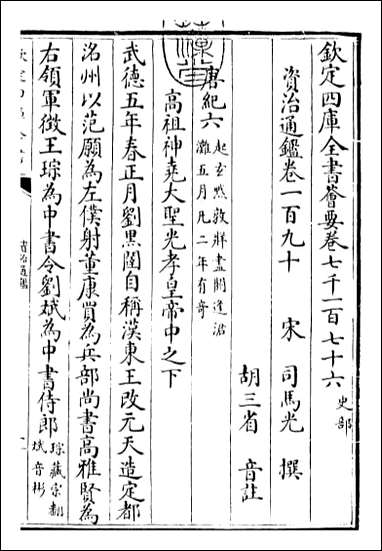 欽定四庫全書薈要卷七千一百七十六 史部
資治通鑑卷一百九十 宋 司馬光 撰
胡三省 音註
唐紀六 起玄黓敦牂盡閼逢涒
灘五月凡二年有奇
高祖神堯大聖光孝皇帝中之下
武德五年春正月劉黒闥自稱漢東王改元天造定都
洺州以范願為左僕射董康買為兵部尚書高雅賢為
右領軍徴王琮為中書令劉斌為中書侍郎 琮藏宗翻
斌音彬